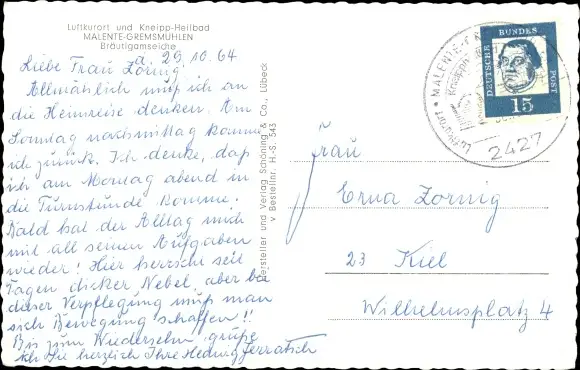 Luftkurort und Kneipp-Heilbad
MALENTE-GREMSMÜHLEN
Bräutigamseiche
29.10.64
Liebe Frau Zornig
Allmählich muß ich an
die Heimreise denken. Am
Sonntag nachmittag komme
ich zurück. Ich denke, daß
ich am Montag abend in
die Turnstunde komme.
Bald hat der Alltag mich
mit all seinen Aufgaben
wieder! Hier herrscht seit
Tagen dicker Nebel, aber bei
dieser Verpflegung muß man
sich Bewegung schaffen!!
Bis zum Wiedersehn grüße
ich Sie herzlich Ihre Hedwig
Hersteller und Verlag Schöning & Co., Lübeck
Bestellnr. H.-S. 543
DEUTSCHE BUNDES POST
15
Luftkurort • MALENTE-G
2427
Frau
Erna Zornig
23 Kiel
Wilhelmsplatz 4